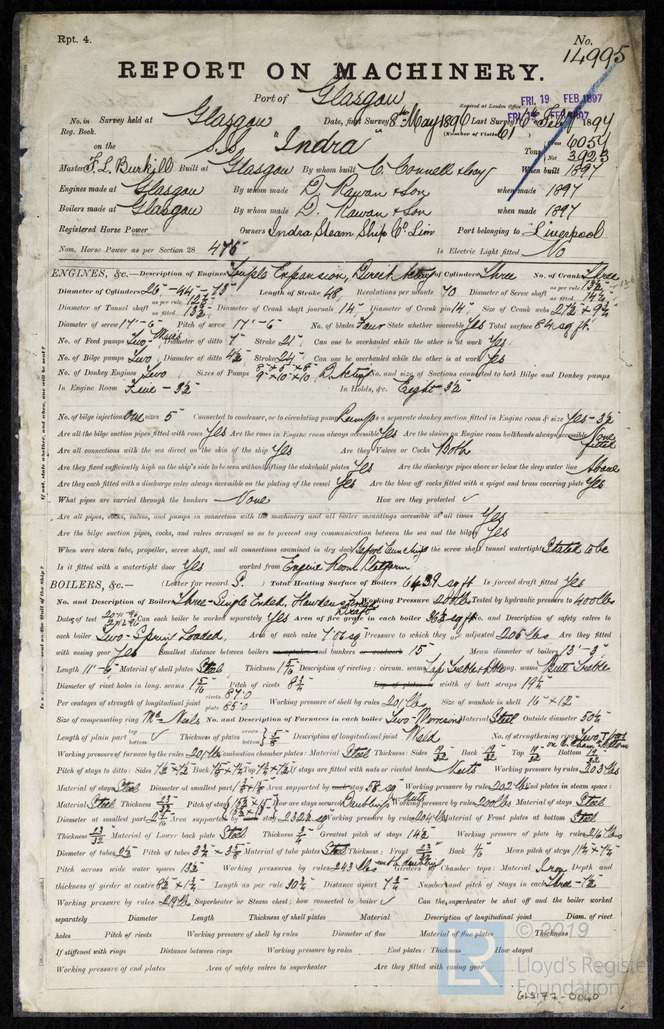 Rpt. 4.
No. 14995
REPORT ON MACHINERY.
Port of Glasgow
Received at London Office FRI. 19 FEB 1897
No. in Survey held at Glasgow Date, first Survey 8th May 1896 Last Survey 16th Feby 1897
Reg. Book. (Number of Visits 61)
on the S.S. "Indra" Tons Gross 6054
Net 3923
Master F. L. Burkill Built at Glasgow By whom built C. Connell & Coy When built 1897
Engines made at Glasgow By whom made D. Rowan & Son when made 1897
Boilers made at Glasgow By whom made D. Rowan & Son when made 1897
Registered Horse Power Owners Indra Steam Ship Co Lim Port belonging to Liverpool
Nom. Horse Power as per Section 28 475 Is Electric Light fitted No
ENGINES, &c.—Description of Engines Triple Expansion, Direct Acting No. of Cylinders Three No. of Cranks Three
Diameter of Cylinders 26"-44"-73" Length of Stroke 48 Revolutions per minute 70 Diameter of Screw shaft as per rule
as fitted 14 1/2
Diameter of Tunnel shaft as per rule
as fitted 13 1/2 Diameter of Crank shaft journals 14 Diameter of Crank pin 14 Size of Crank webs
Diameter of screw 17'-6" Pitch of screw 17'-6" No. of blades Four State whether moveable Yes Total surface 84 sq ft
No. of Feed pumps Two Diameter of ditto Stroke 21" Can one be overhauled while the other is at work Yes
No. of Bilge pumps Two Diameter of ditto 4 1/2 Stroke Can one be overhauled while the other is at work Yes
No. of Donkey Engines Two Sizes of Pumps No. and size of Suctions connected to both Bilge and Donkey pumps
In Engine Room Five - 3 1/2 In Holds, &c. Eight 3 1/2
No. of bilge injections One sizes 5" Connected to condenser, or to circulating pump Pump Is a separate donkey suction fitted in Engine room & size Yes - 3 1/2
Are all the bilge suction pipes fitted with roses Yes Are the roses in Engine room always accessible Yes Are the sluices on Engine room bulkheads always accessible None fitted
Are all connections with the sea direct on the skin of the ship Yes Are they Valves or Cocks Both
Are they fixed sufficiently high on the ship's side to be seen without lifting the stokehold plates Yes Are the discharge pipes above or below the deep water line Above
Are they each fitted with a discharge valve always accessible on the plating of the vessel Yes Are the blow off cocks fitted with a spigot and brass covering plate Yes
What pipes are carried through the bunkers None How are they protected ✓
Are all pipes, cocks, valves, and pumps in connection with the machinery and all boiler mountings accessible at all times Yes
Are the bilge suction pipes, cocks, and valves arranged so as to prevent any communication between the sea and the bilges Yes
When were stern tube, propeller, screw shaft, and all connections examined in dry dock Before launching Is the screw shaft tunnel watertight Stated to be
Is it fitted with a watertight door Yes worked from Engine Room Platform
BOILERS, &c.— (Letter for record S.) Total Heating Surface of Boilers 6439 sq ft Is forced draft fitted Yes
No. and Description of Boilers Three-Single Ended, Howdens Forced Draft Working Pressure 200 lbs Tested by hydraulic pressure to 400 lbs
Date of test Can each boiler be worked separately Yes Area of fire grate in each boiler No. and Description of safety valves to
each boiler Two-Spring Loaded, Area of each valve 7.06 sq Pressure to which they are adjusted 205 lbs Are they fitted
with easing gear Yes Smallest distance between boilers or uptakes and bunkers or woodwork 15" Mean diameter of boilers 13'-3"
Length 11'-6" Material of shell plates Steel Thickness 1 5/16 Description of riveting: circum. seams Lap Double long. seams Butt Double
Diameter of rivet holes in long. seams 1 5/16 Pitch of rivets 8 3/4 Lap of plates or width of butt straps 19 1/4
Per centages of strength of longitudinal joint rivets 87.0
plate 85.0 Working pressure of shell by rules 201 lbs Size of manhole in shell 16" x 12"
Size of compensating ring No. and Description of Furnaces in each boiler Two-Morisons Material Steel Outside diameter 50 1/2
Length of plain part top
bottom Thickness of plates crown
bottom 5/8 Description of longitudinal joint Weld No. of strengthening rings
Working pressure of furnace by the rules 201 lbs Combustion chamber plates: Material Steel Thickness: Sides Back Top Bottom
Pitch of stays to ditto: Sides Back Top If stays are fitted with nuts or riveted heads Nuts Working pressure by rules 203 lbs
Material of stays Steel Diameter at smallest part Area supported by each stay 58 sq Working pressure by rules 202 lbs End plates in steam space:
Material Steel Thickness Pitch of stays How are stays secured Working pressure by rules 200 lbs Material of stays Steel
Diameter at smallest part Area supported by each stay Working pressure by rules 204 lbs Material of Front plates at bottom Steel
Thickness Material of Lower back plate Steel Thickness 3/4 Greatest pitch of stays 14 1/2 Working pressure of plate by rules 216 lbs
Diameter of tubes Pitch of tubes Material of tube plates Steel Thickness: Front Back Mean pitch of stays
Pitch across wide water spaces 13 1/2 Working pressures by rules 243 lbs Girders to Chamber tops: Material Iron Depth and
thickness of girder at centre Length as per rule 30 3/4 Distance apart 7 3/4 Number and pitch of Stays in each Three - 7 1/2
Working pressure by rules Superheater or Steam chest; how connected to boiler ✓ Can the superheater be shut off and the boiler worked
separately Diameter Length Thickness of shell plates Material Description of longitudinal joint Diam. of rivet
holes Pitch of rivets Working pressure of shell by rules Diameter of flue Material of flue plates Thickness
If stiffened with rings Distance between rings Working pressure by rules End plates: Thickness How stayed
Working pressure of end plates Area of safety valves to superheater Are they fitted with easing gear
© 2019
Lloyd's Register
Foundation
GLS177-0040